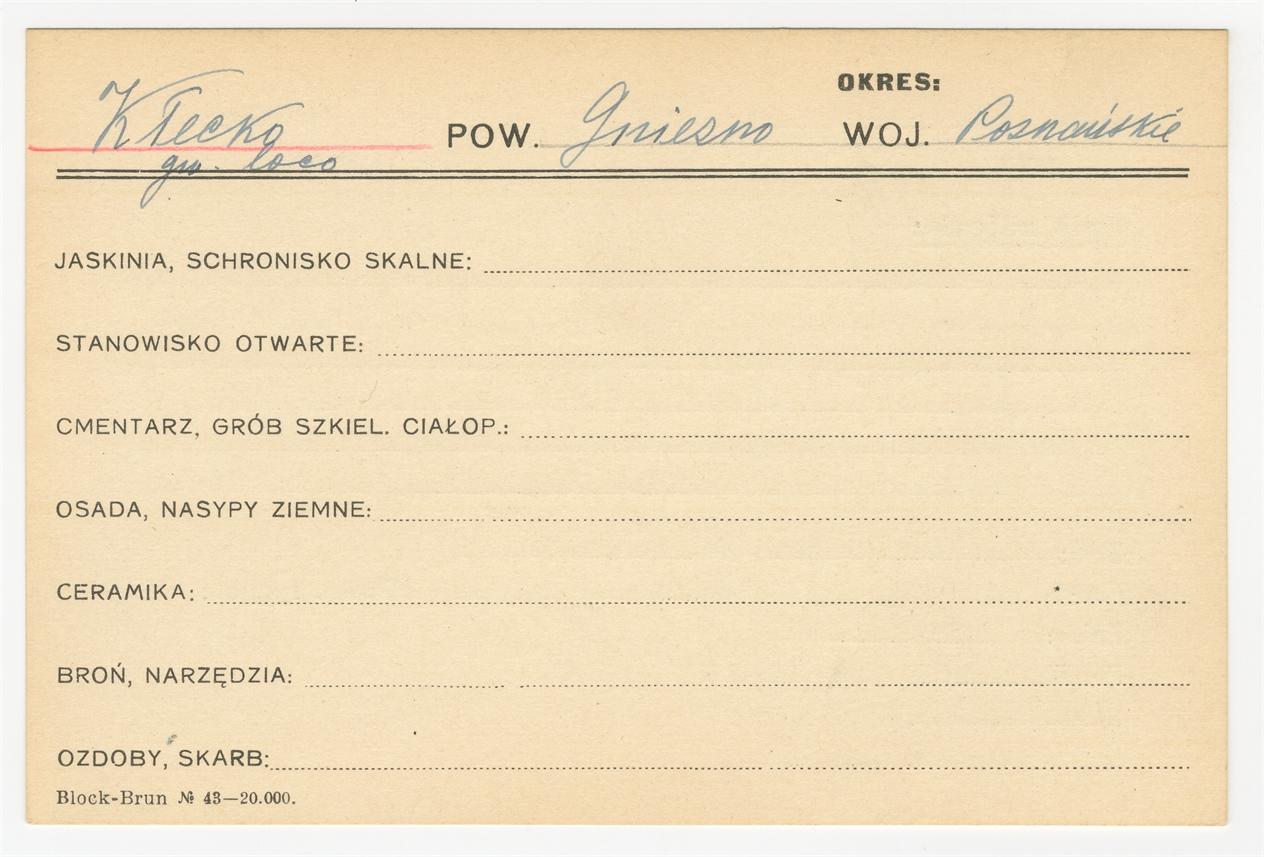 OKRES:
Kłecko POW. Gniezno WOJ. Poznańskie
gm. loco
JASKINIA, SCHRONISKO SKALNE:
STANOWISKO OTWARTE:
CMENTARZ, GRÓB SZKIEL. CIAŁOP.:
OSADA, NASYPY ZIEMNE:
CERAMIKA:
BROŃ, NARZĘDZIA:
OZDOBY, SKARB:
Block-Brun № 43—20.000.